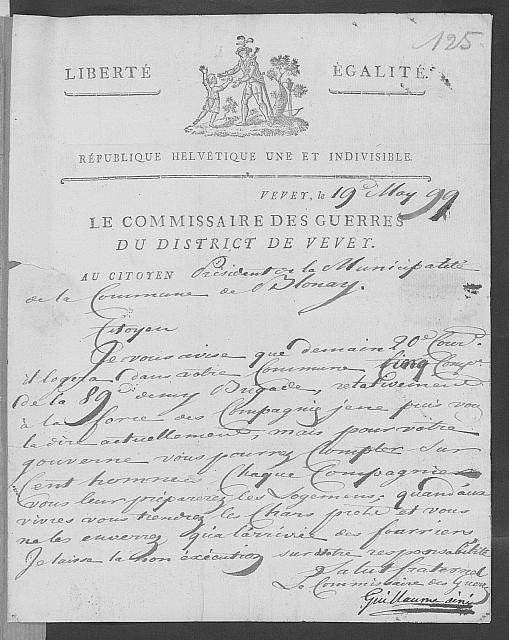 125
LIBERTÉ ÉGALITÉ.
RÉPUBLIQUE HELVÉTIQUE UNE ET INDIVISIBLE.
VEVEY, le 19e May 99
LE COMMISSAIRE DES GUERRES
DU DISTRICT DE VEVEY.
AU CITOYEN Président de la Municipalité
de la Commune de Blonay.
Citoyen
Je vous avise que demain 20e Cour.t
il logera dans votre Commune Cinq Comp.
de la 89e demy Brigade, relativement
à la force des Compagnie je ne puis vous
la dire actuellement, mais pour votre
gouverne vous pourrez Compter sur
Cent hommes Chaque Compagnie
vous leur préparerez les Logemens; quand aux
vivres vous tiendrez les Chars prets et vous
ne les enverrez qu'a larrivée des fourriers
Je laisse la non éxécution sur votre responsabilité
Salut fraternel
Le Commissaire des Guerr
Guillaume